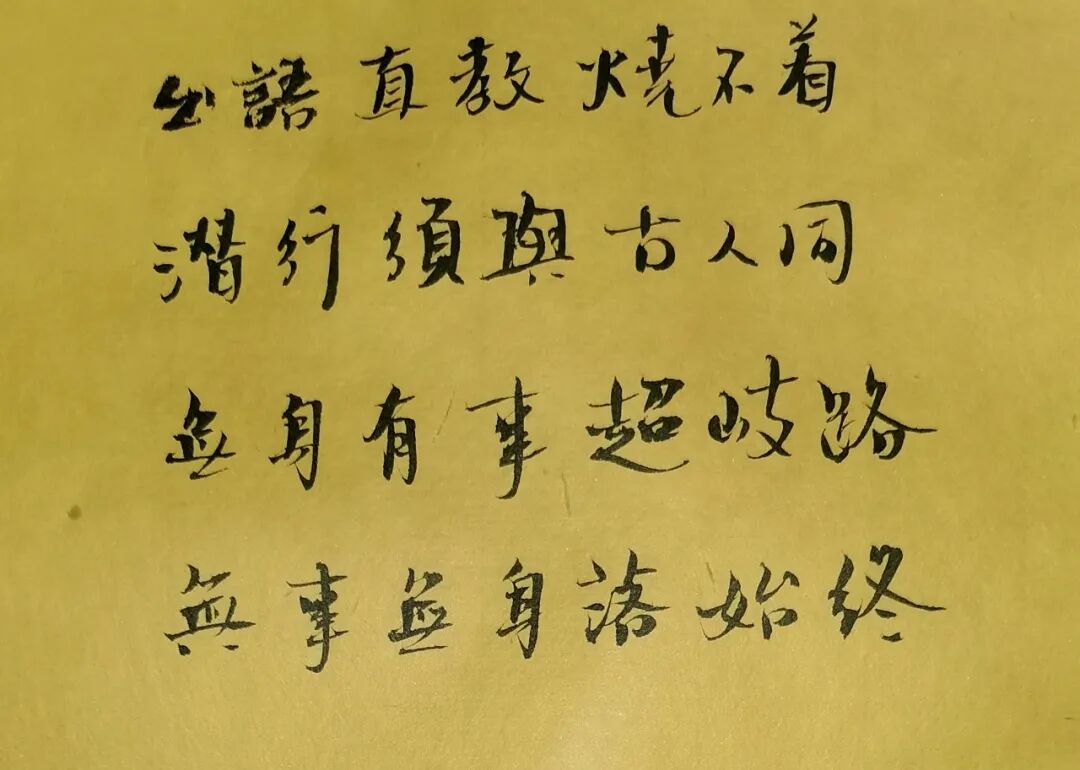 出語直教燒不着
潛行須與古人同
無身有事超岐路
無事無身落始終